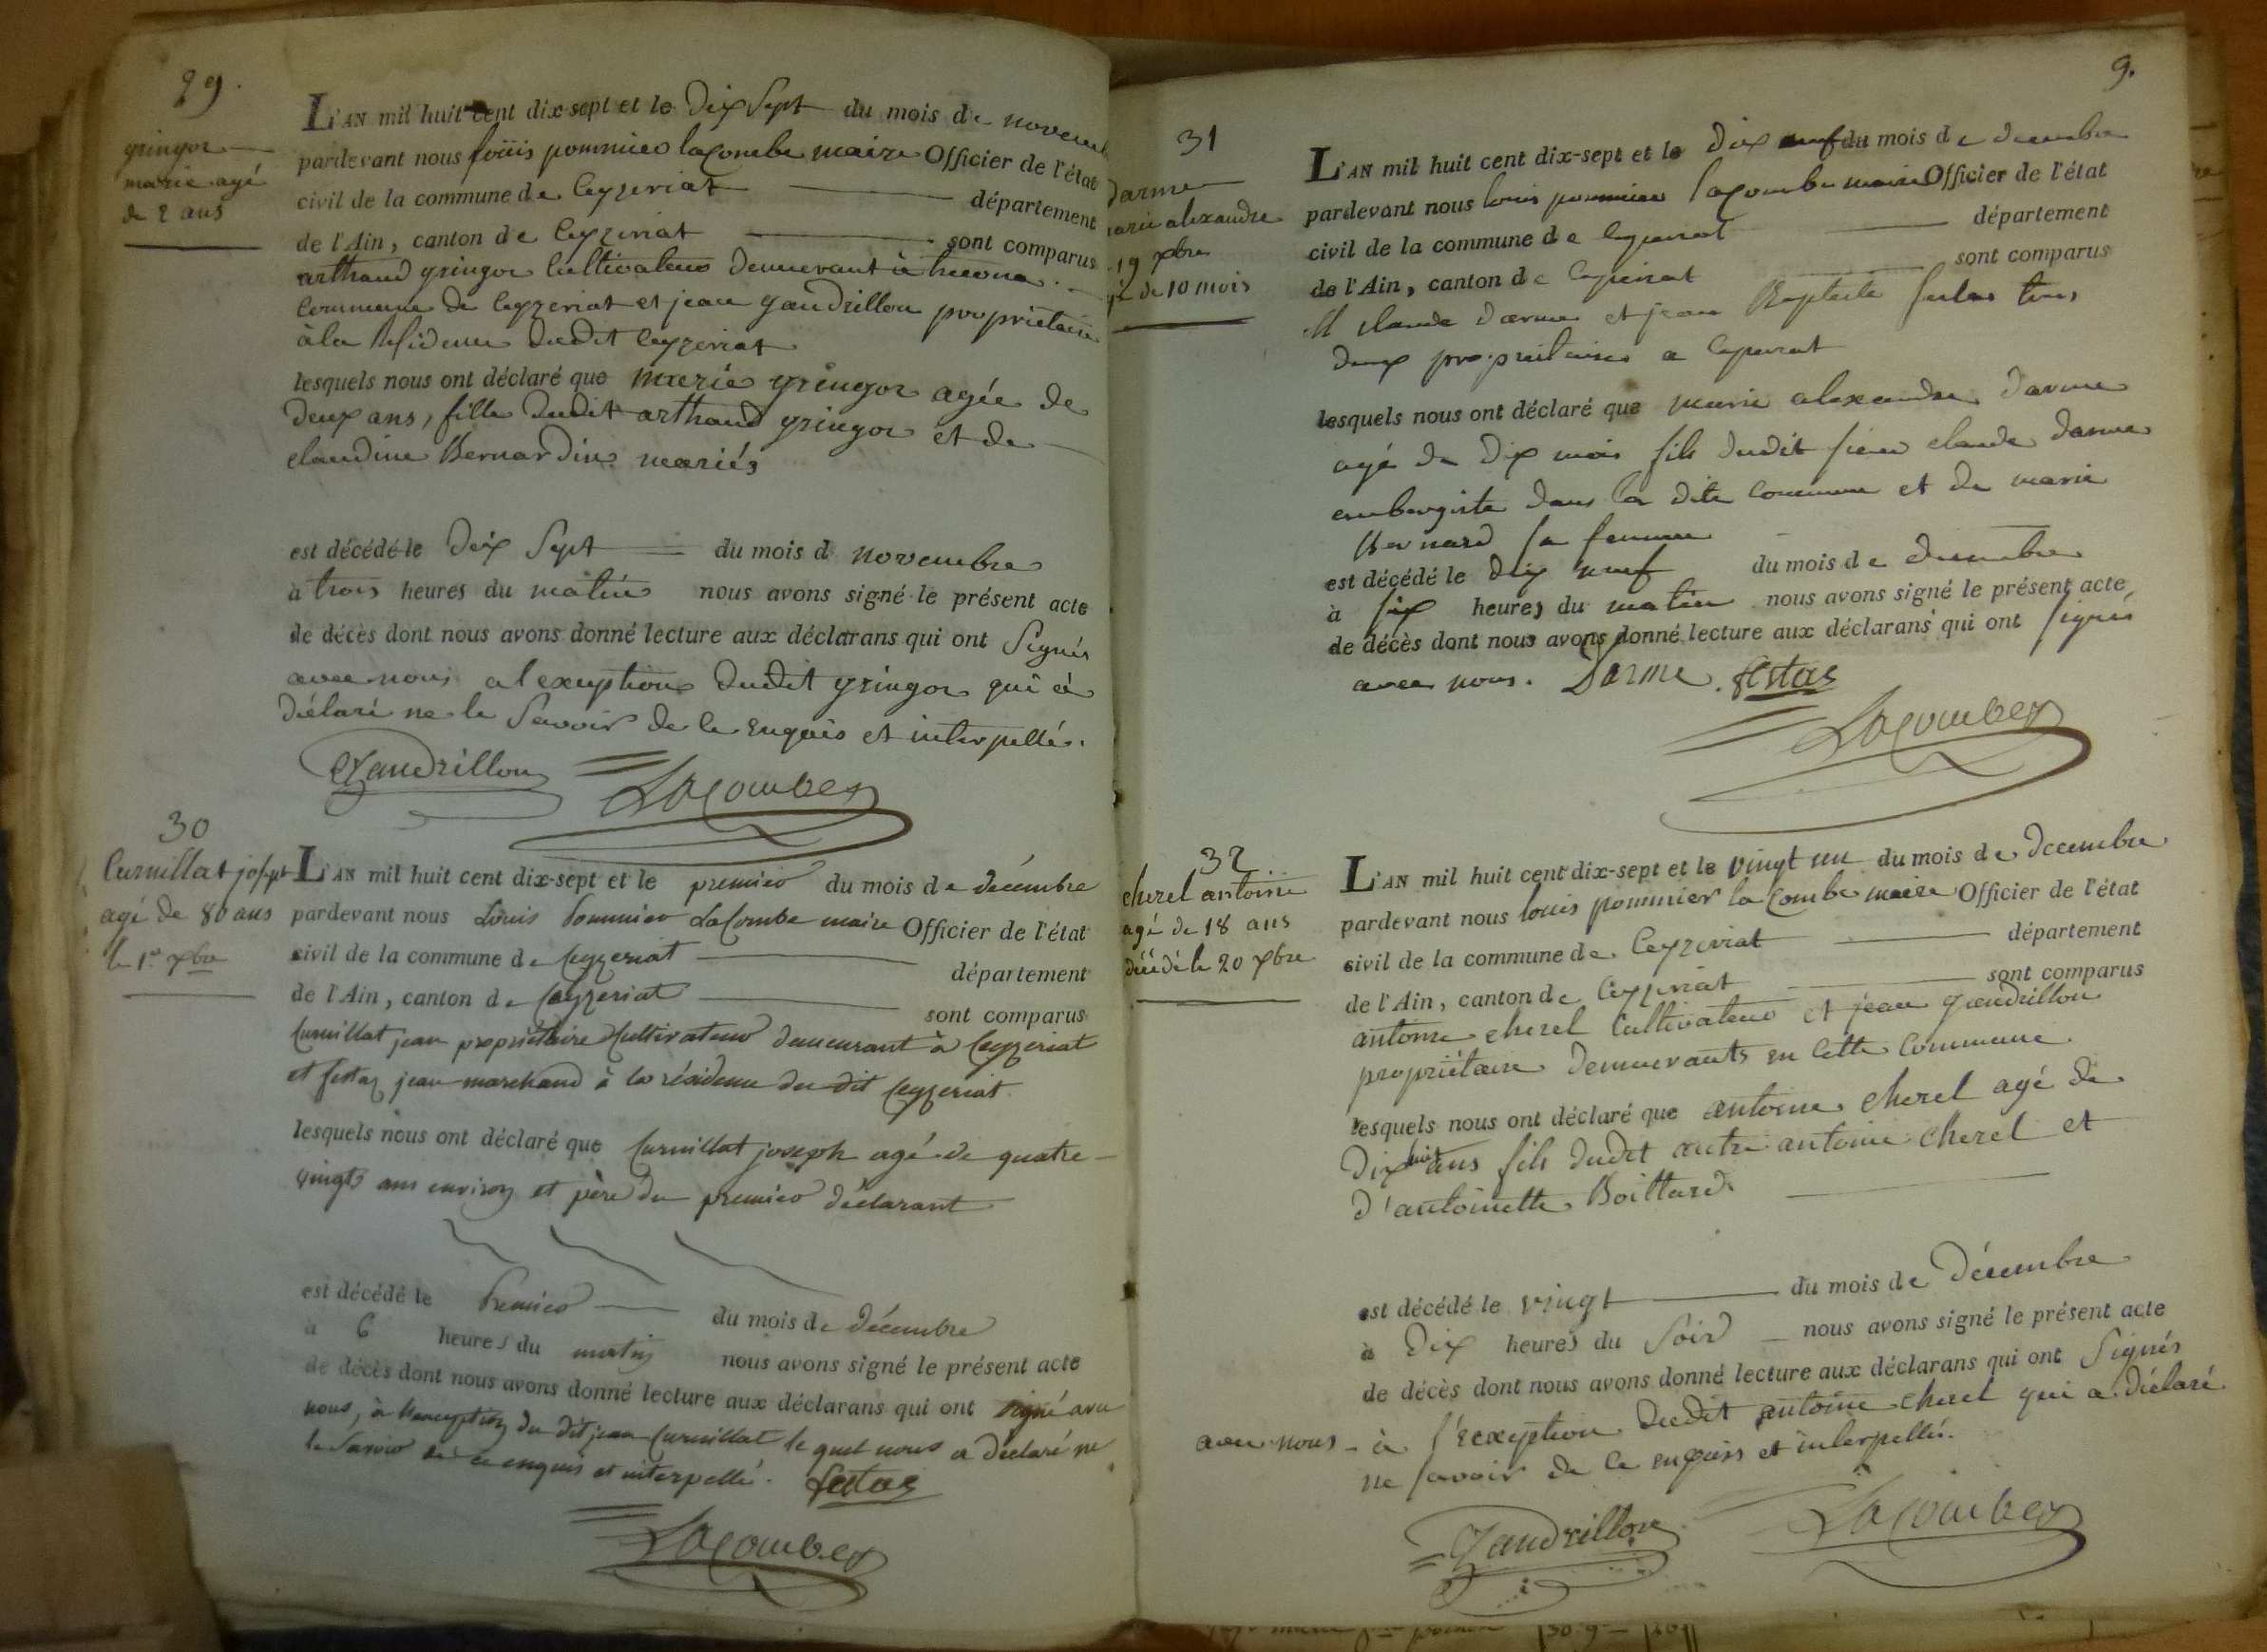 29.
gringoz
marie agé
de 2 ans
L'AN mil huit cent dix-sept et le dix sept du mois de novemb
pardevant nous louis pommier lacombe maire Officier de l'état
civil de la commune de Ceyzeriat département
de l'Ain, canton de Ceyzeriat sont comparus
arthaud gringoz Cultivateur demeurant à
Commune de Ceyzeriat et jean gandrillon propriétaire
à la résidence dudit Ceyzeriat
lesquels nous ont déclaré que marie gringoz agée de
deux ans, fille dudit arthaud gringoz et de
claudine Bernardin mariés
est décédé le dix sept du mois d novembre
à trois heures du matin nous avons signé le présent acte
de décès dont nous avons donné lecture aux déclarans qui ont Signés
avec nous a l'exception dudit gringoz qui à
déclaré ne le Savoir de ce enquis et interpellé.
Gandrillon Lacombe
30
Curnillat joseph
agé de 80 ans
le 1er xbre
L'AN mil huit cent dix-sept et le premier du mois de décembre
pardevant nous Louis Pommier LaCombe maire Officier de l'état
civil de la commune de Ceyzeriat département
de l'Ain, canton de Ceyzeriat sont comparus
Curnillat jean propriétaire Cultivateur demeurant à Ceyzeriat
et festaz jean marchand à la résidence du dit Ceyzeriat
lesquels nous ont déclaré que Curnillat joseph agé de quatre
vingts ans environ et père du premier déclarant
est décédé le Premier du mois de décembre
à 6 heures du matin nous avons signé le présent acte
de décès dont nous avons donné lecture aux déclarans qui ont signé avec
nous, à l'exception du dit jean Curnillat le quel nous a déclaré ne
le Savoir de ce enquis et interpellé. festas
Lacombe
9.
31
Darme
marie alexandre
19 xbre
agé de 10 mois
L'AN mil huit cent dix-sept et le dix neuf du mois de decembre
pardevant nous louis pommier lacombe maire Officier de l'état
civil de la commune de Ceyzeriat département
de l'Ain, canton de Ceyzeriat sont comparus
claude darme et jean Baptiste festas tous
deux propriétaires a Ceyzeriat
lesquels nous ont déclaré que marie alexandre darme
agé de dix mois fils dudit sieur claude darme
aubergiste dans la dite Commune et de marie
Bernard sa femme
est décédé le dix neuf du mois de decembre
à six heures du matin nous avons signé le présent acte
de décès dont nous avons donné lecture aux déclarans qui ont signés
avec nous. Darme. festas
Lacombe
32
cherel antoine
agé de 18 ans
décédé le 20 xbre
L'AN mil huit cent dix-sept et le vingt un du mois de decembre
pardevant nous louis pommier lacombe maire Officier de l'état
civil de la commune de Ceyzeriat département
de l'Ain, canton de Ceyzeriat sont comparus
antoine cherel Cultivateur et jean gandrillon
propriétaire demeurants en cette Commune
lesquels nous ont déclaré que antoine cherel agé de
dix huit ans fils dudit autre antoine cherel et
d'antoinette Boittard
est décédé le vingt du mois de décembre
à dix heures du Soir nous avons signé le présent acte
de décès dont nous avons donné lecture aux déclarans qui ont Signés
avec nous - à l'éxception dudit antoine cherel qui a déclaré
ne savoir de ce enquis et interpellé.
Gandrillon Lacombe